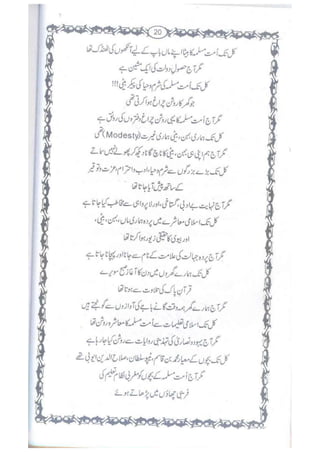 20
کل تک اُمت مسلمہ کا بیٹا اپنے ماں باپ کے لیے آنکھوں کی ٹھنڈک تھا
مگر آج حصولِ دولت کی ایک مشین ہے
کل تک اُمت مسلمہ کی شرم و حیا کی پیکر بیٹی!!!
جو گھر کا روشن چراغ ہوا کرتی تھی
مگر آج اُمت مسلمہ کا یہی روشن چراغ دفتروں کی رونق ہے
کل تک ہماری بہن، بیٹی ہماری غیرت (Modesty) تھی
مگر آج ہم اپنی ہی بہن، بیٹی کا ناچ گانا دیکھ کر پھولے نہیں سماتے
کل تک بڑے بزرگوں سے شرم و حیا، ادب و احترام، عزت و توقیر
کے ساتھ پیش آیا جاتا تھا
مگر آج نہایت بے ادبی، گستاخی، اور لا پرواہی سے مخاطب کیا جاتا ہے
کل تک اسلامی معاشرے میں پردہ ہماری ماں، بہن، بیٹی،
اور بیوی کا حقیقی زیور ہوا کرتا تھا
مگر آج پردہ جہالت کی علامت کے نام سے جانا اور پہچانا جاتا ہے
کل تک ہمارے گھروں میں دن کا آغاز صبح سویرے
قرآنِ پاک کی تلاوت سے ہوتا تھا
مگر آج ہمارے گھر ہمہ وقت گانے باجے کی آوازوں سے گونجتے ہیں
کل تک اسلامی تعلیمات سے اُمت مسلمہ کا معاشرہ روشن تھا
مگر آج یہود و نصاریٰ کی تہذیبی روایات سے روشن کیا جا رہا ہے
کل تک بچوں کے معیار محمد بن قاسم، ٹیپو سلطان، صلاح الدین ایوبی تھے
مگر آج اُمت مسلمہ کے بچوں کو مغربی نظامِ تعلیم کی
چھاؤں میں پڑھاتے ہوئے